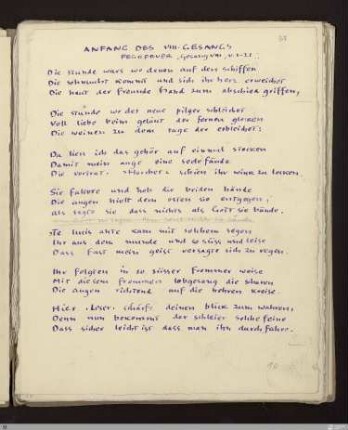 ANFANG DES VIII. GESANGS
FEGEFEUER
Die stunde wars wo denen auf den schiffen
Die wehmuht kommt und sich ihr herz erweichet
Die haut der freunde hand zum abschied griffen,
Die stunde wo der neue pilger schleichet
Voll liebe beim geläut der fernen glocken
Die weinen zu dem tage der erbleichet:
Da liess ich das gehör auf einmal stocken
Damit mein auge eine seele fände
Die vortrat. Horcher schien ihr wink zu locken.
Sie faltete und hob die beiden hände
Die augen hielt dem osten sie entgegen,
Als sagte sie dass nichts als Gott sie bände.
›Te lucis ante‹ kam mit solchem segen
Ihr aus dem munde und so süss und leise
Dass fast mein geist versagte sich zu regen.
Ihr folgten in so süsser frommer weise
Mit diesem frommen lobgesang die scharen
Die augen richtend auf die hehren kreise.
Hier, Leser, schärfe deinen blick zum wahren,
Denn nun bekommt der schleier solche feine
Dass sicher leicht ist dass man ihn durchfahre.